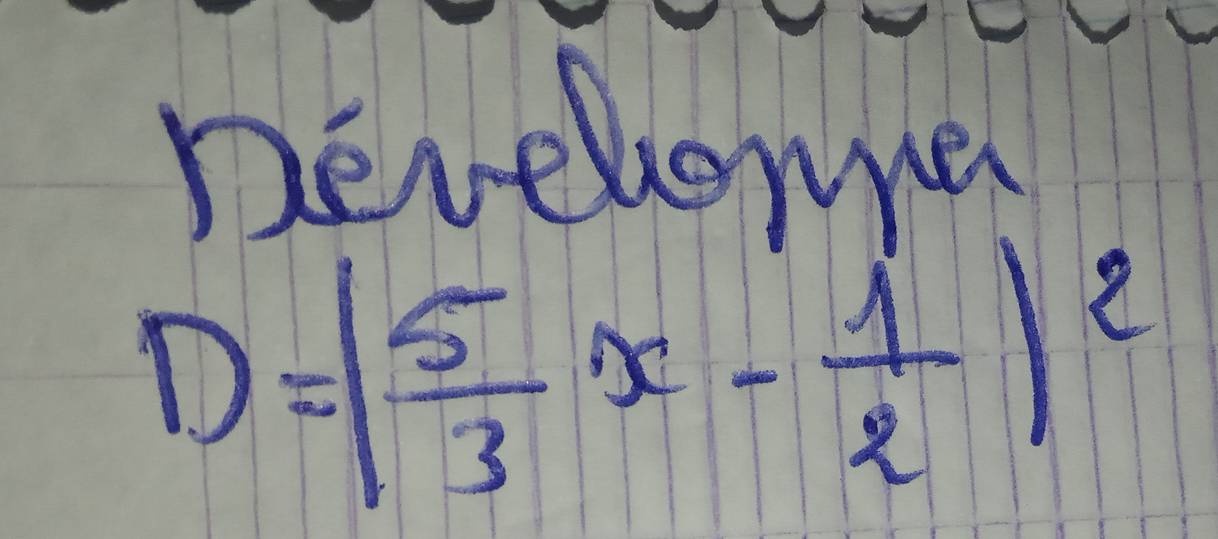 Développer
D = (5/3 x - 1/2)²